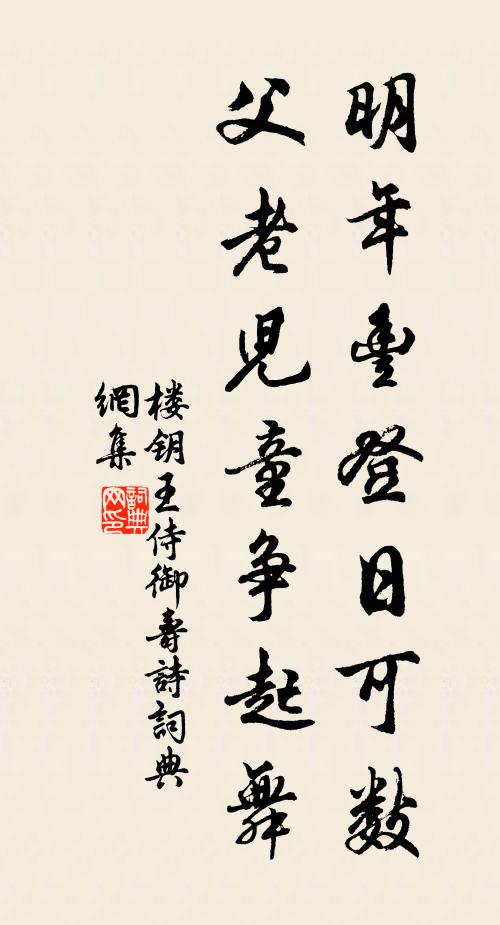 明年豐登日可數
父老児童争起舞
楼钥王侍御壽詩詞典
網集
詞典
网印